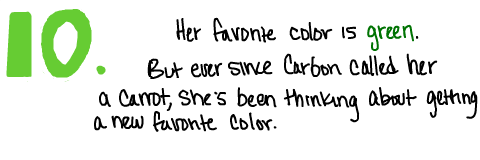 10. Her favorite color is green.
But ever since Carbon called her
a carrot, she's been thinking about getting
a new favorite color.